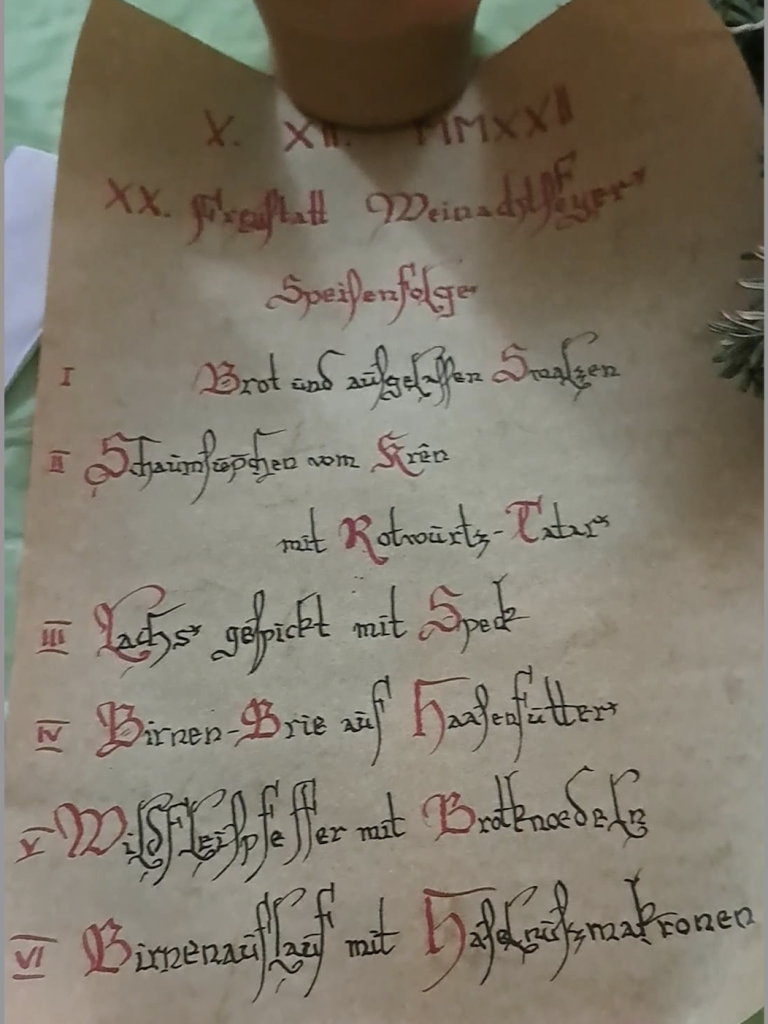 X. XII. MMXXII
XX. Freystatt Weinachtsfeyer
Speisenfolge
I Brot und aufgelassen Smaltzen
II Schaumsüpchen vom Krên
mit Rotwurtz-Tatar
III Lachs gespickt mit Speck
IV Birnen-Brie auf Haasenfutter
V Wildfleischpfeffer mit Brotknoedeln
VI Birnenauflauf mit Haselnuszmakronen